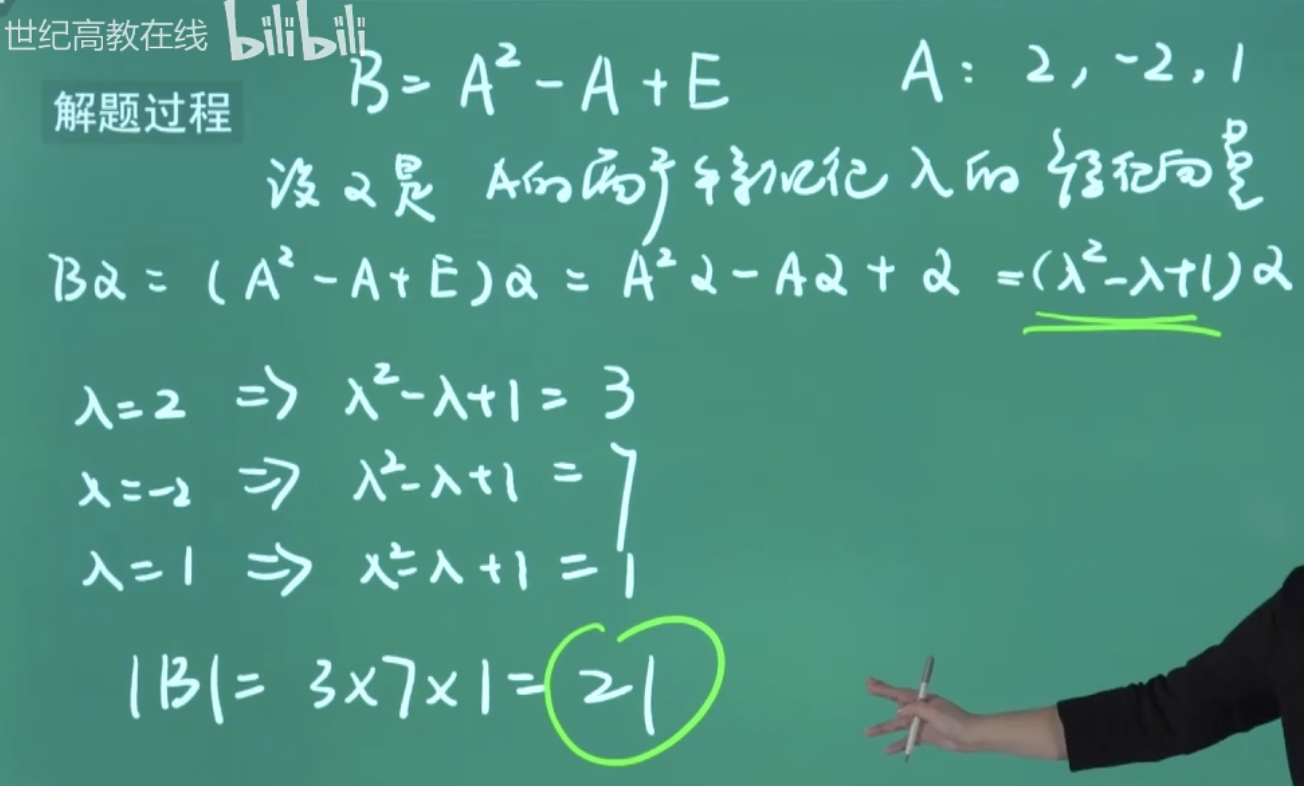 世纪高教在线 bilibili
解题过程
B = A² - A + E A: 2, -2, 1
设α是 A的属于特征值 λ的 特征向量
Bα = (A² - A + E)α = A²α - Aα + α = (λ² - λ + 1)α
λ = 2 => λ² - λ + 1 = 3
λ = -2 => λ² - λ + 1 = 7
λ = 1 => λ² - λ + 1 = 1
|B| = 3×7×1 = 21